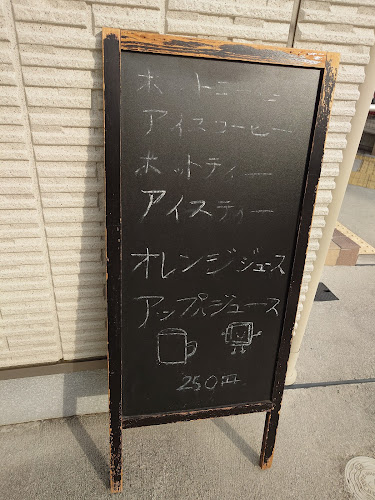 ホットコーヒー
アイスコーヒー
ホットティー
アイスティー
オレンジジュース
アップルジュース
250円